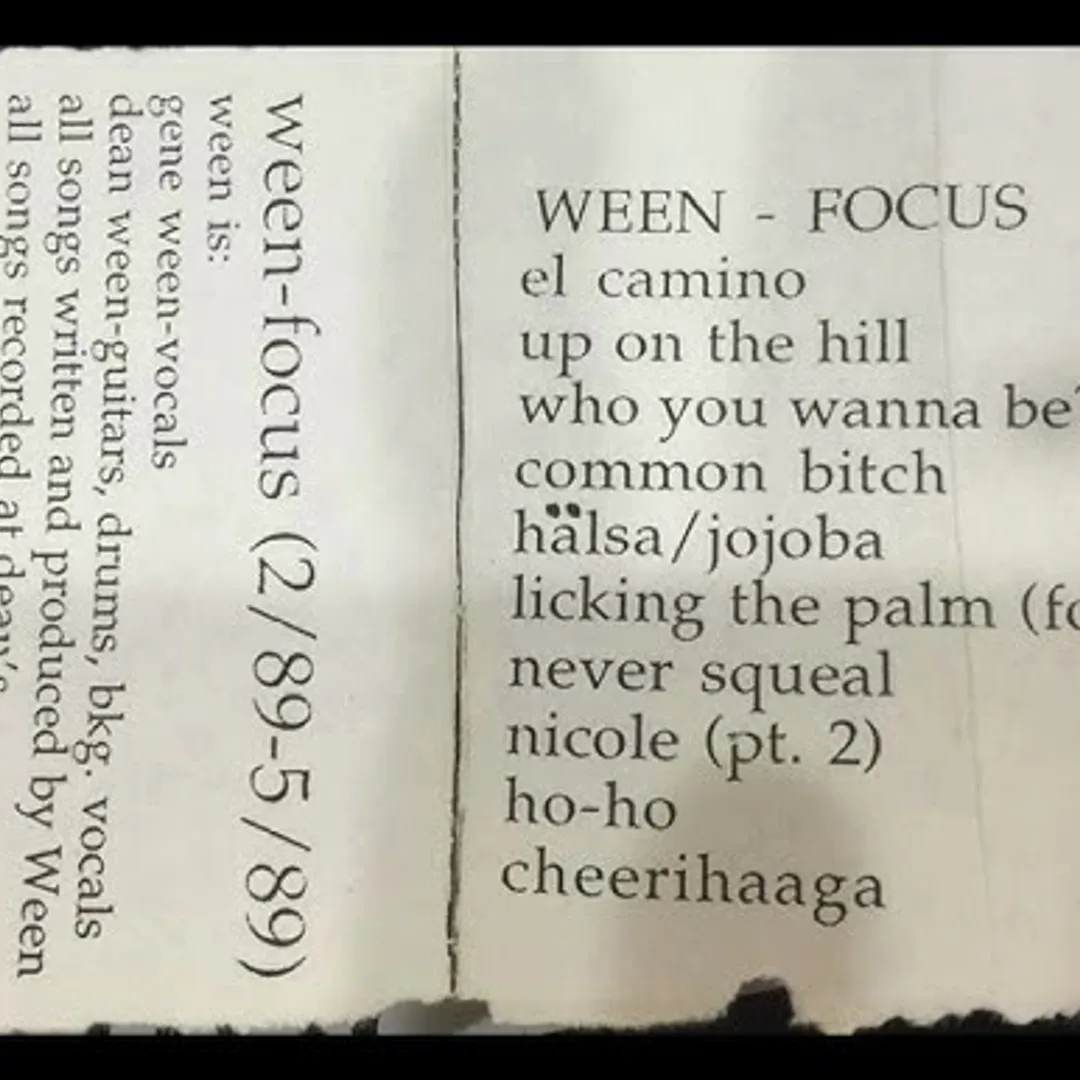 ween-focus (2/89-5/89)
ween is:
gene ween-vocals
dean ween-guitars, drums, bkg. vocals
all songs written and produced by Ween
all songs recorded at dean's
WEEN - FOCUS
el camino
up on the hill
who you wanna be?
common bitch
hälsa/jojoba
licking the palm (fo
never squeal
nicole (pt. 2)
ho-ho
cheerihaaga